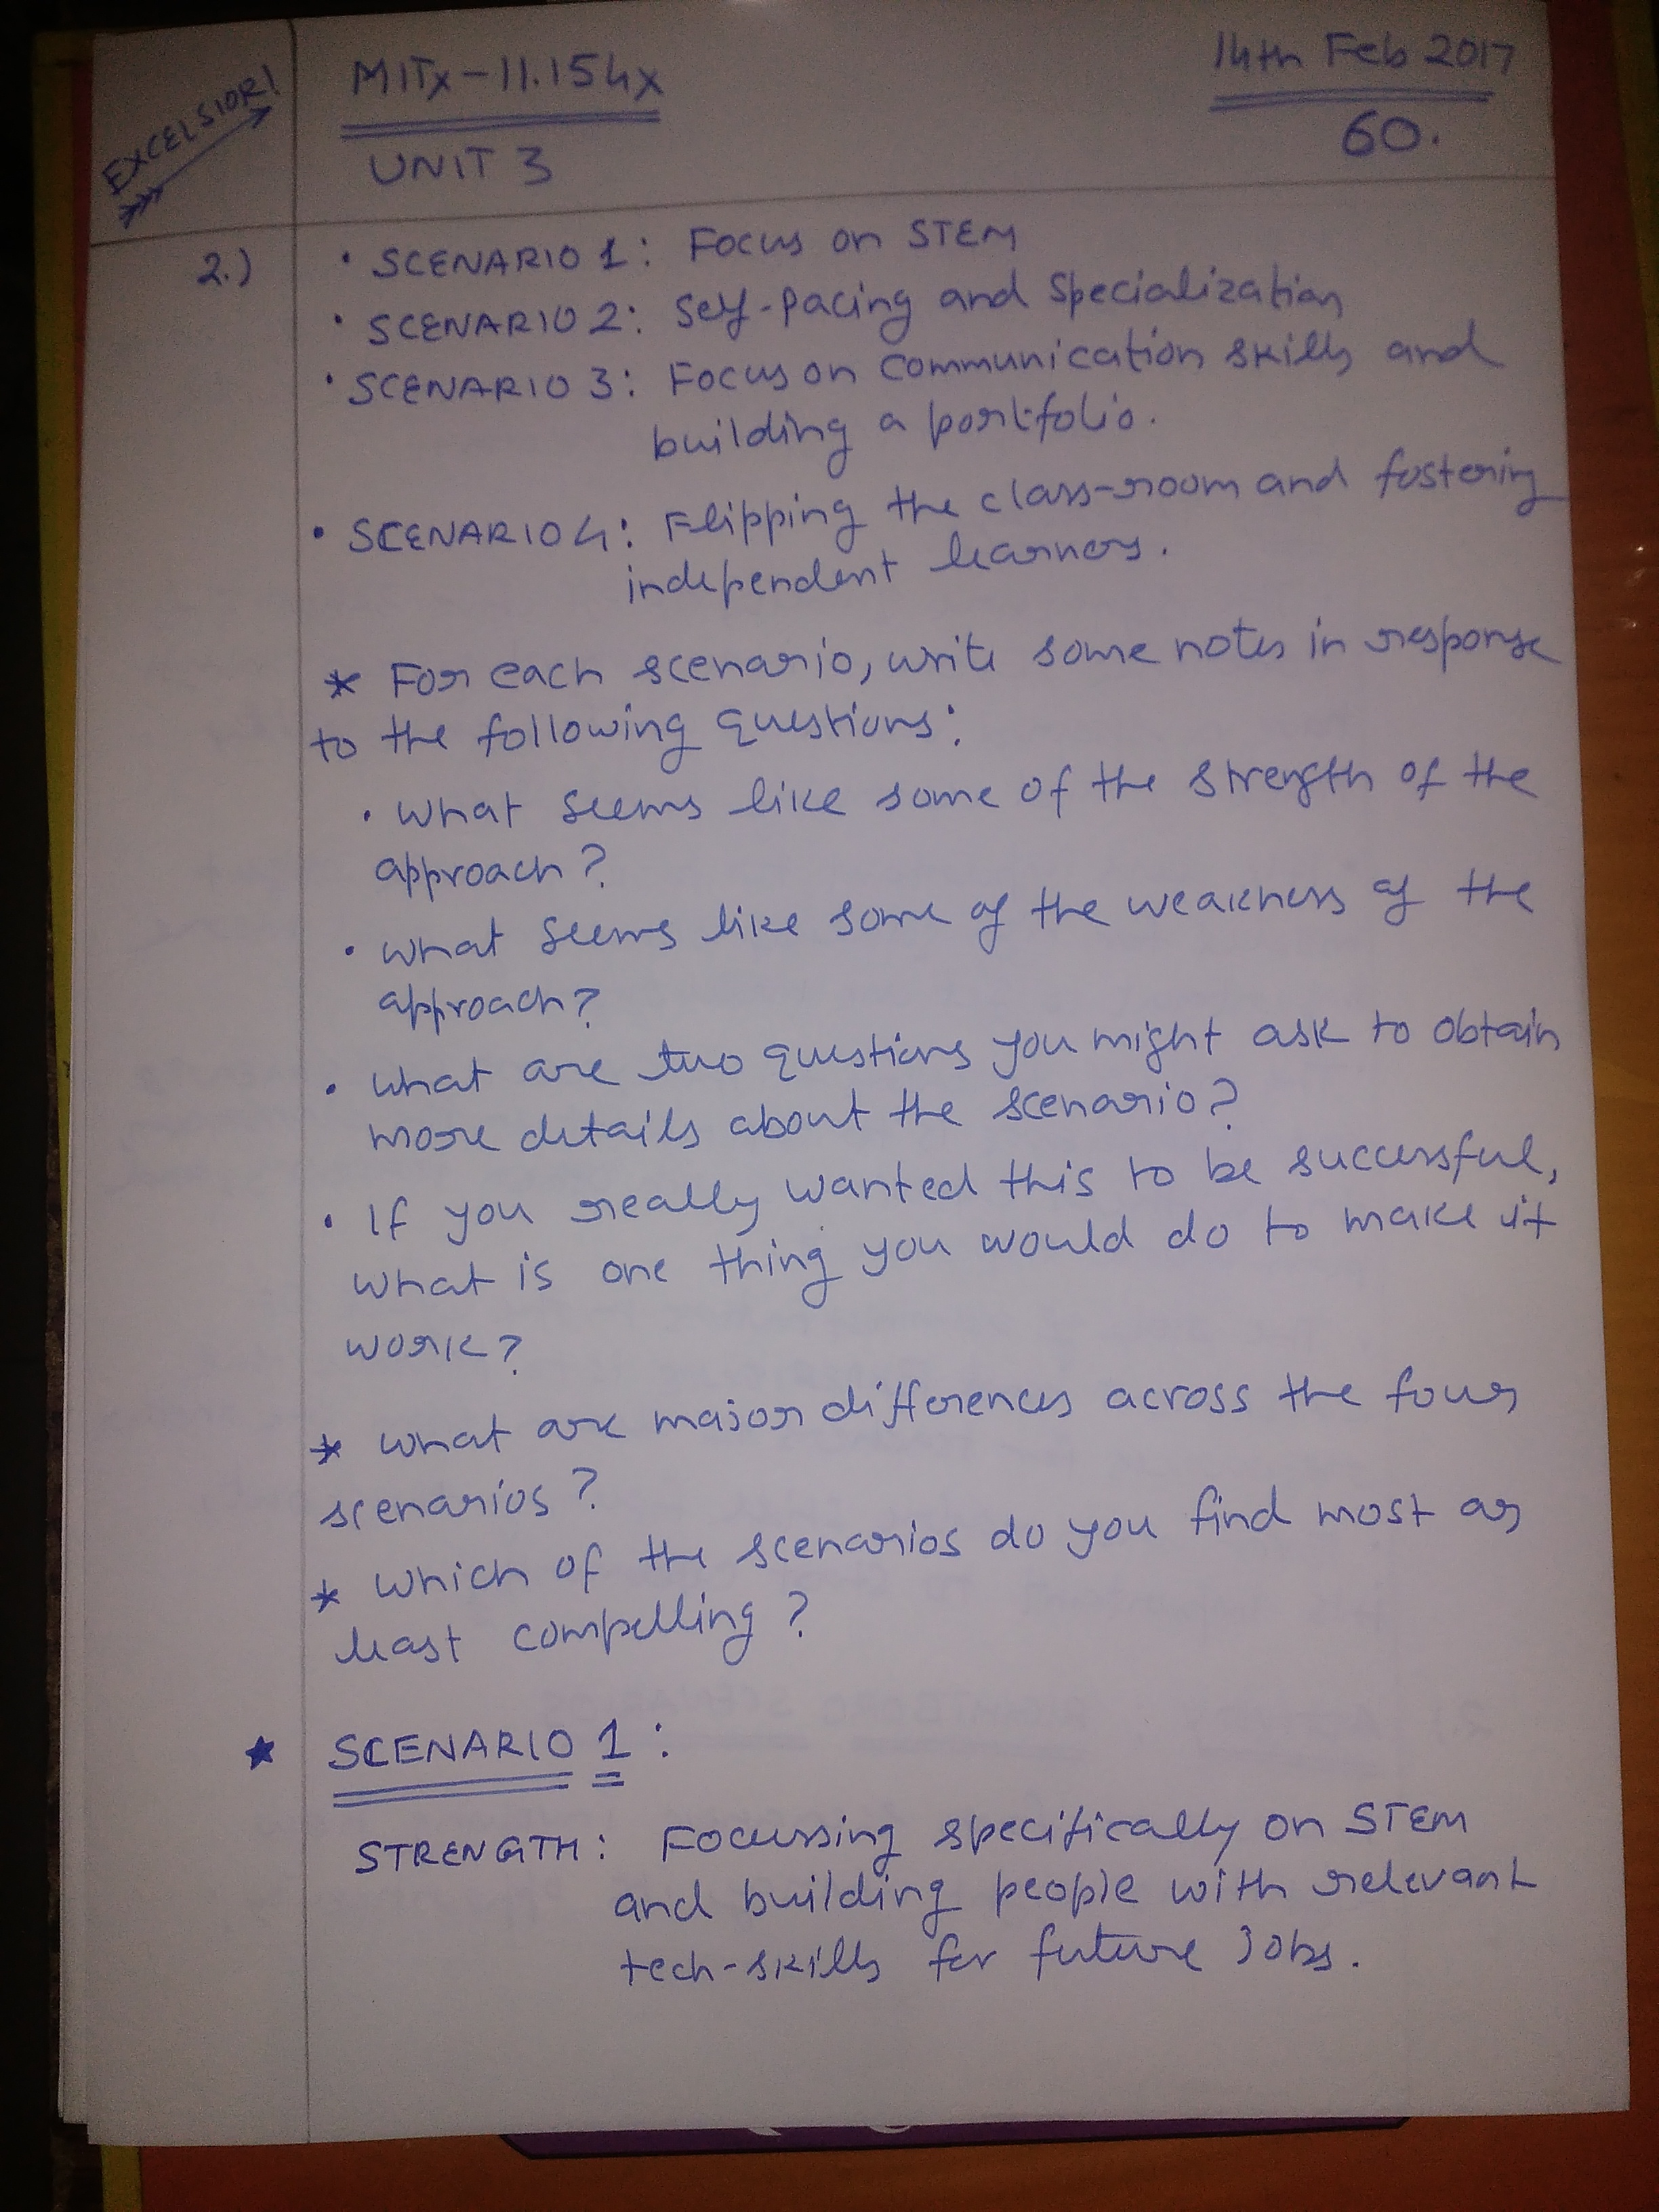 EXCELSIOR!
MITx-11.154x
UNIT 3
14th Feb 2017
60.
2.)
• SCENARIO 1: Focus on STEM
• SCENARIO 2: Self-pacing and specialization
• SCENARIO 3: Focus on communication skills and
building a portfolio.
• SCENARIO 4: Flipping the class-room and fostering
independent learners.
* For each scenario, write some notes in response
to the following questions:
• what seems like some of the strength of the
approach?
• what seems like some of the weakness of the
approach?
• what are two questions you might ask to obtain
more details about the scenario?
• If you really wanted this to be successful,
what is one thing you would do to make it
work?
* what are major differences across the four
scenarios?
* which of the scenarios do you find most or
least compelling?
★ SCENARIO 1:
STRENGTH: Focussing specifically on STEM
and building people with relevant
tech-skills for future Jobs.